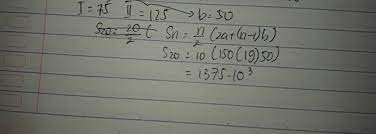 I = 75 II = 125 b = 50
S20 = 20/2 ( Sn = n/2 (2a+(n-1)b)
S20 = 10 (150(19)50)
= 1375·10³